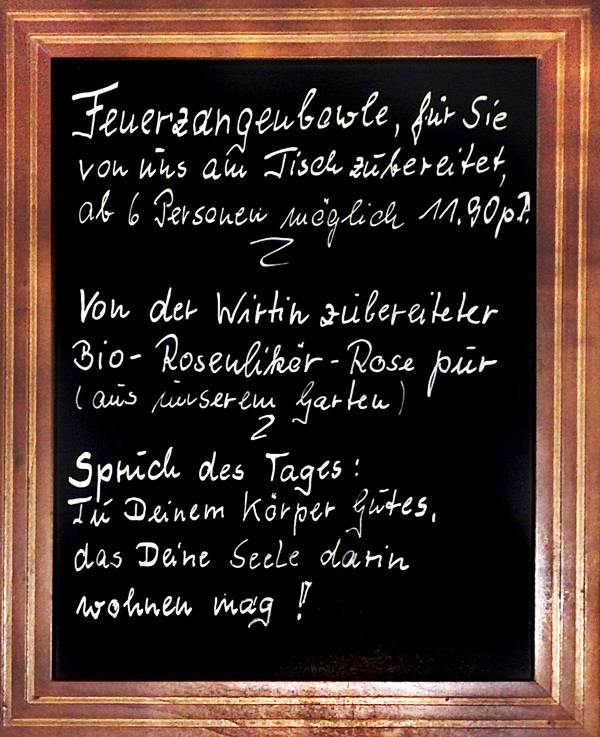 Feuerzangenbowle, für Sie
von uns am Tisch zubereitet,
ab 6 Personen möglich 11.90 p.P.
Von der Wirtin zubereiteter
Bio-Rosenlikör-Rose pur
(aus unserem Garten)
Spruch des Tages:
Tu Deinem Körper Gutes,
das Deine Seele darin
wohnen mag!